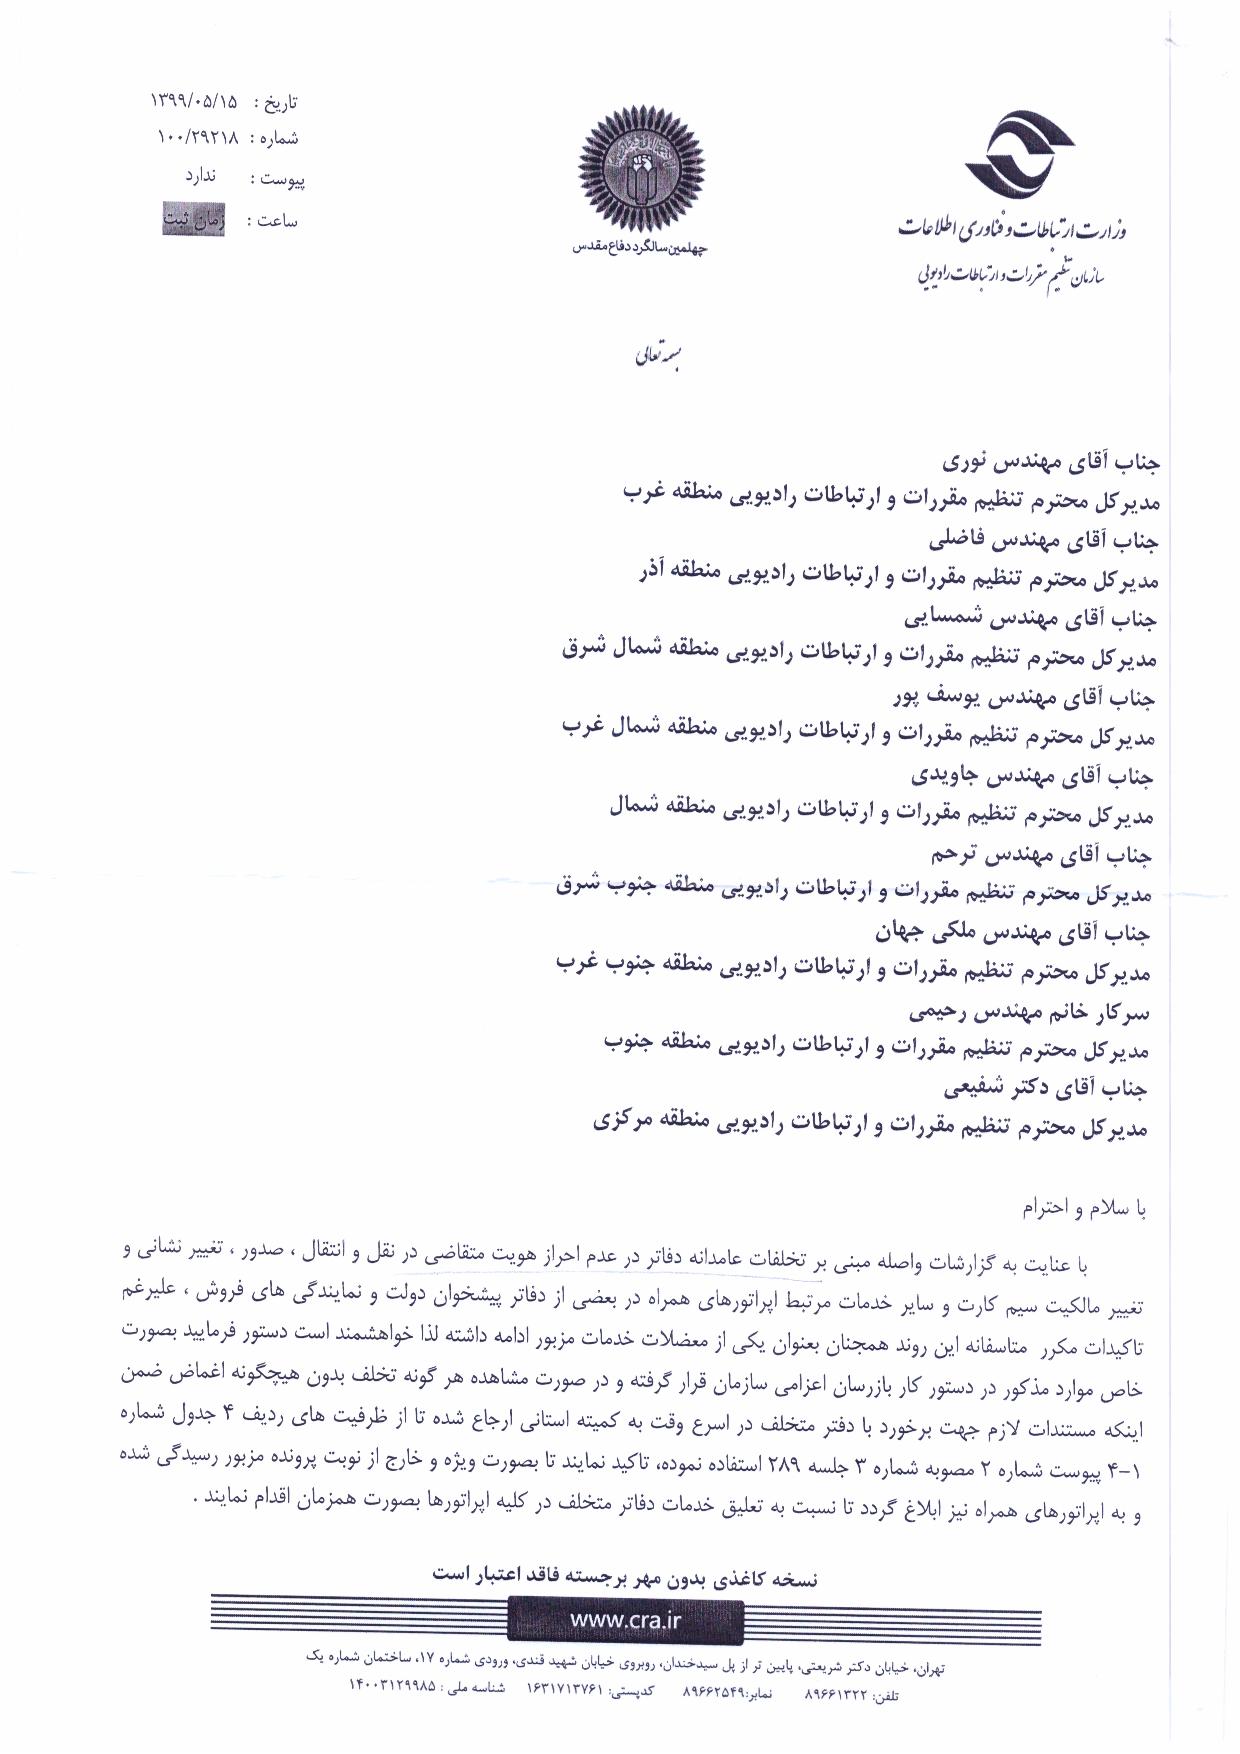 تاریخ : ۱۳۹۹/۰۵/۱۵
شماره : ۱۰۰/۲۹۲۱۸
پیوست : ندارد
ساعت : زمان ثبت
چهلمین سالگرد دفاع مقدس
وزارت ارتباطات و فناوری اطلاعات
سازمان تنظیم مقررات و ارتباطات رادیویی
بسمه تعالی
جناب آقای مهندس نوری
مدیرکل محترم تنظیم مقررات و ارتباطات رادیویی منطقه غرب
جناب آقای مهندس فاضلی
مدیرکل محترم تنظیم مقررات و ارتباطات رادیویی منطقه آذر
جناب آقای مهندس شمسایی
مدیرکل محترم تنظیم مقررات و ارتباطات رادیویی منطقه شمال شرق
جناب آقای مهندس یوسف پور
مدیرکل محترم تنظیم مقررات و ارتباطات رادیویی منطقه شمال غرب
جناب آقای مهندس جاویدی
مدیرکل محترم تنظیم مقررات و ارتباطات رادیویی منطقه شمال
جناب آقای مهندس ترحم
مدیرکل محترم تنظیم مقررات و ارتباطات رادیویی منطقه جنوب شرق
جناب آقای مهندس ملکی جهان
مدیرکل محترم تنظیم مقررات و ارتباطات رادیویی منطقه جنوب غرب
سرکار خانم مهندس رحیمی
مدیرکل محترم تنظیم مقررات و ارتباطات رادیویی منطقه جنوب
جناب آقای دکتر شفیعی
مدیرکل محترم تنظیم مقررات و ارتباطات رادیویی منطقه مرکزی
با سلام و احترام
با عنایت به گزارشات واصله مبنی بر تخلفات عامدانه دفاتر در عدم احراز هویت متقاضی در نقل و انتقال ، صدور ، تغییر نشانی و
تغییر مالکیت سیم کارت و سایر خدمات مرتبط اپراتورهای همراه در بعضی از دفاتر پیشخوان دولت و نمایندگی های فروش ، علیرغم
تاکیدات مکرر متاسفانه این روند همچنان بعنوان یکی از معضلات خدمات مزبور ادامه داشته لذا خواهشمند است دستور فرمایید بصورت
خاص موارد مذکور در دستور کار بازرسان اعزامی سازمان قرار گرفته و در صورت مشاهده هر گونه تخلف بدون هیچگونه اغماض ضمن
اینکه مستندات لازم جهت برخورد با دفتر متخلف در اسرع وقت به کمیته استانی ارجاع شده تا از ظرفیت های ردیف ۴ جدول شماره
۴-۱ پیوست شماره ۲ مصوبه شماره ۳ جلسه ۲۸۹ استفاده نموده، تاکید نمایند تا بصورت ویژه و خارج از نوبت پرونده مزبور رسیدگی شده
و به اپراتورهای همراه نیز ابلاغ گردد تا نسبت به تعلیق خدمات دفاتر متخلف در کلیه اپراتورها بصورت همزمان اقدام نمایند .
نسخه کاغذی بدون مهر برجسته فاقد اعتبار است
www.cra.ir
تهران، خیابان دکتر شریعتی، پایین تر از پل سیدخندان، روبروی خیابان شهید قندی، ورودی شماره ۱۷، ساختمان شماره یک
تلفن: ۸۹۶۶۱۳۲۲ نمابر: ۸۹۶۶۲۵۴۹ کدپستی: ۱۶۳۱۷۱۳۷۶۱ شناسه ملی : ۱۴۰۰۳۱۲۹۹۸۵